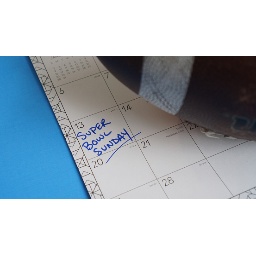 6
7
13
14
SUPER
BOWL
SUNDAY
20
21
28